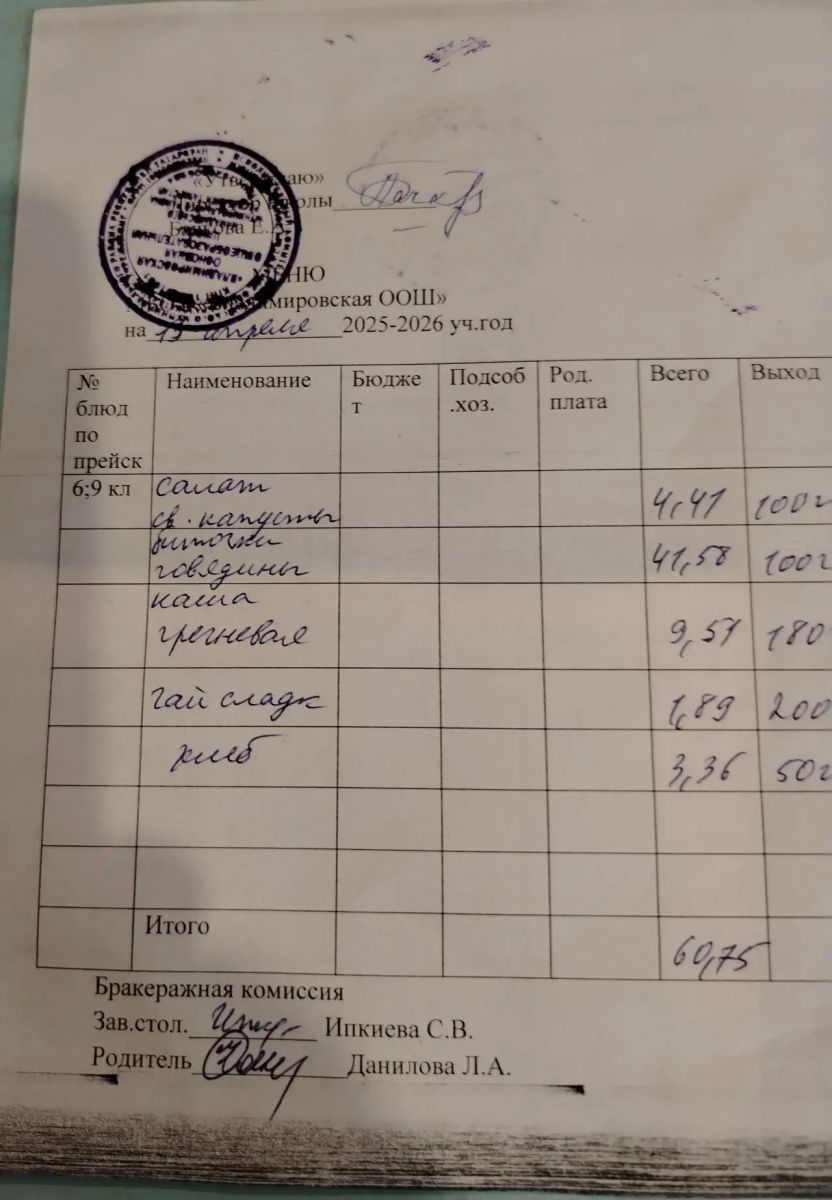 «Утверждаю»
Директор школы
Е.
МЕНЮ
«Владимировская ООШ»
на 15 апреля 2025-2026 уч.год
№ блюд по прейск Наименование Бюджет Подсоб.хоз. Род. плата Всего Выход
6;9 кл салат
св. капусты 4,41 100г
биточки
говядины 41,58 100г
каша
гречневая 9,51 180
чай сладк 1,89 200
хлеб 3,36 50г
Итого 60,75
Бракеражная комиссия
Зав.стол. Ипкиева С.В.
Родитель Данилова Л.А.